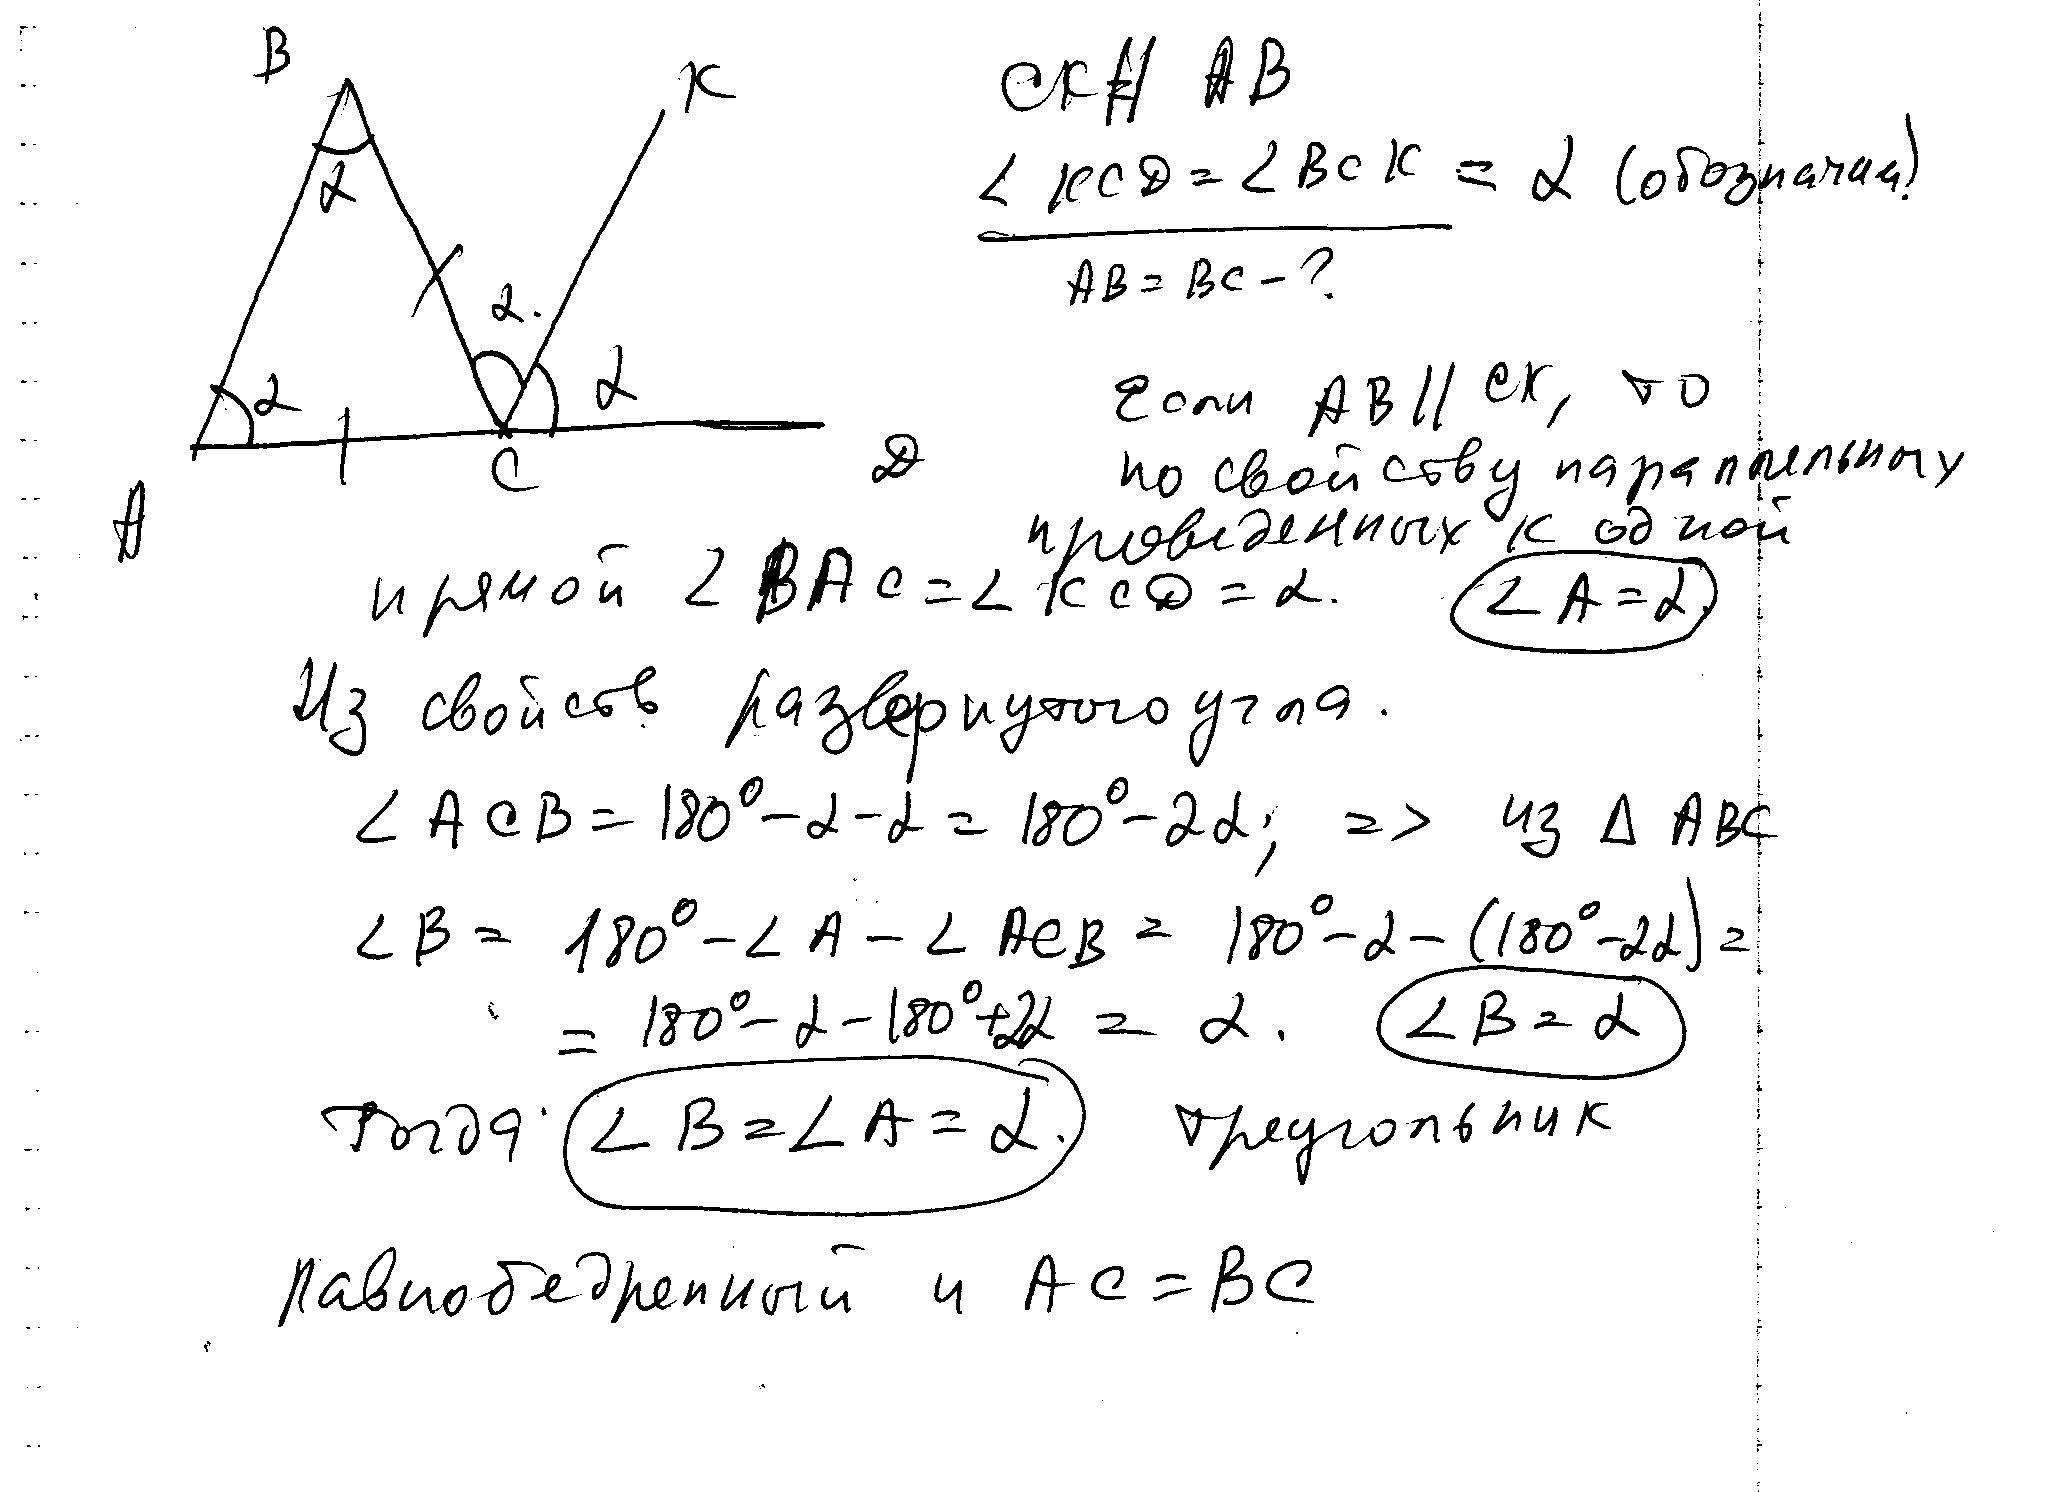 B
K
α
α.
α
α
A
C
D
CK ∥ AB
∠KCD = ∠BCK = α (обозначим)
AB = BC - ?
Если AB ∥ CK, то
по свойству параллельных
проведенных к одной
прямой ∠BAC = ∠KCD = α. ∠A = α.
Из свойств развернутого угла.
∠ACB = 180° - α - α = 180° - 2α; => из Δ ABC
∠B = 180° - ∠A - ∠ACB = 180° - α - (180° - 2α) =
= 180° - α - 180° + 2α = α. ∠B = α
Тогда ∠B = ∠A = α. треугольник
равнобедренный и AC = BC